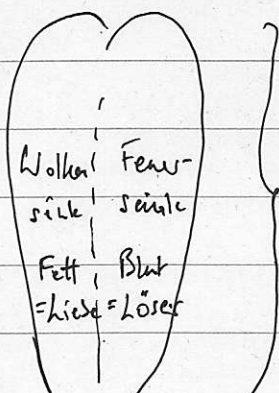 Wolken
säule
Fett
=Liebe
Feuer-
säule
Blut
=Löser